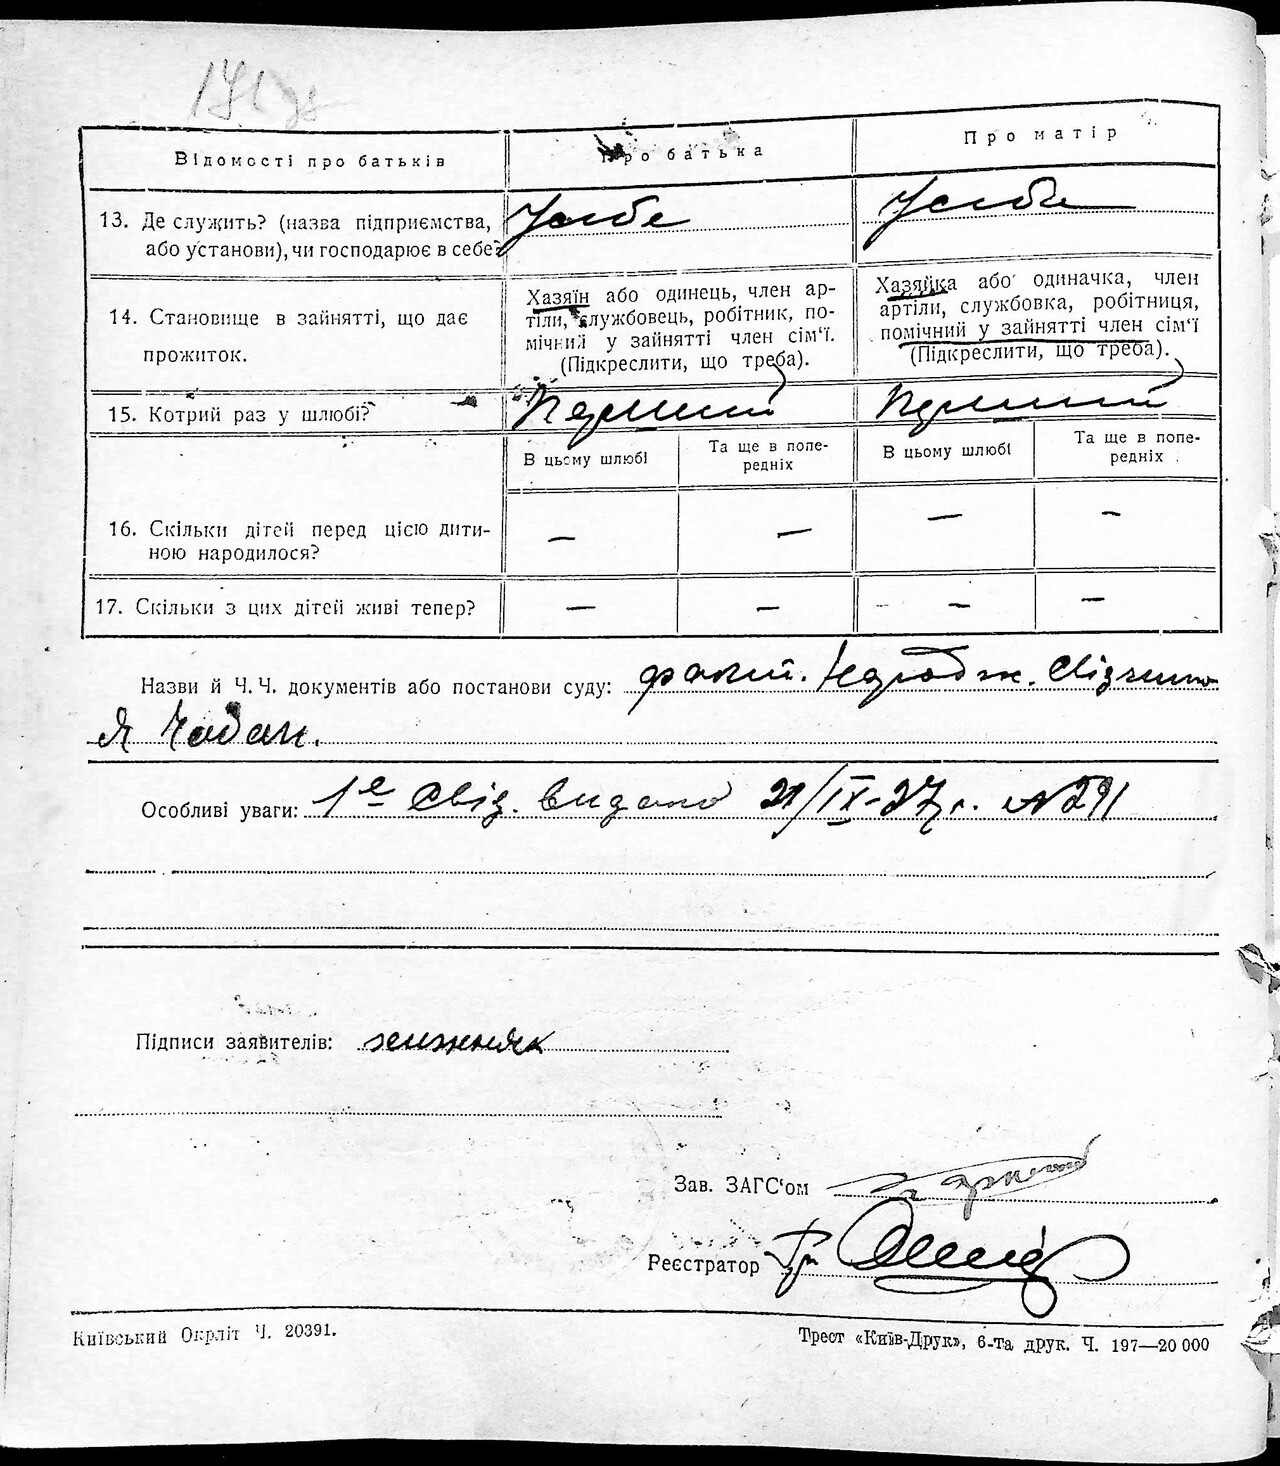 Відомості про батьків
Про батька
Про матір
13. Де служить? (назва підприємства,
або установи), чи господарює в себе?
У себе
У себе
14. Становище в зайнятті, що дає
прожиток.
Хазяїн або одинець, член ар-
тіли, службовець, робітник, по-
мічний у зайнятті член сім'ї.
(Підкреслити, що треба).
Хазяйка або одиначка, член
артіли, службовка, робітниця,
помічний у зайнятті член сім'ї
(Підкреслити, що треба).
15. Котрий раз у шлюбі?
Перший
Перший
В цьому шлюбі
Та ще в попе-
редніх
В цьому шлюбі
Та ще в попе-
редніх
16. Скільки дітей перед цією дити-
ною народилося?
—
—
—
—
17. Скільки з цих дітей живі тепер?
—
—
—
—
Назви й Ч. Ч. документів або постанови суду: факт. Народж.
Особливі уваги: 1е Свід. видано 21/IX-27 г. №291
Підписи заявителів:
Зав. ЗАГС'ом
Реєстратор
Київський Окрліт Ч. 20391.
Трест «Київ-Друк», 6-та друк. Ч. 197—20 000